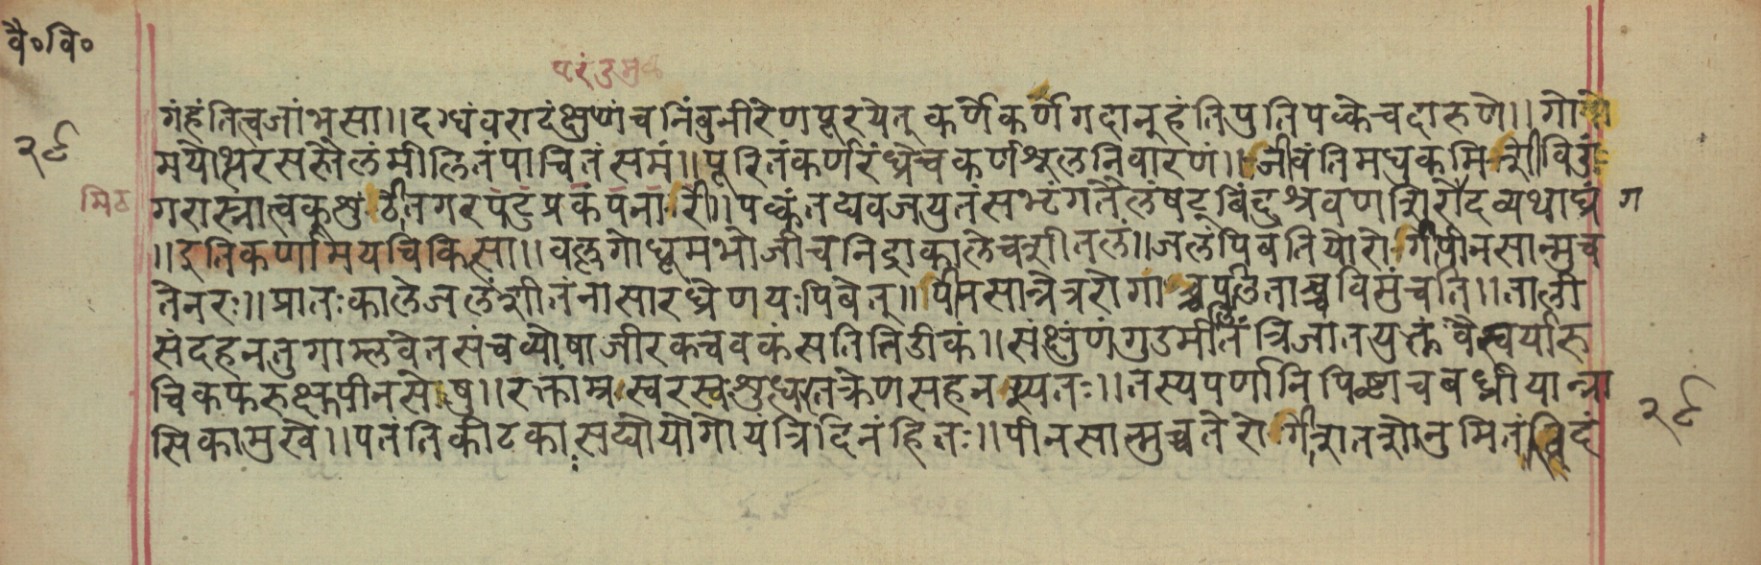 वै॰वि॰
परंतुमु
२९
गंहंतित्वजांभसा॥दग्धंवराटंक्षुणंचनिंबुनीरेणपूरयेत्कर्णेकर्णगदान्हंतिपुतिपक्केचदारुणे॥गो
मयोत्थरसस्तैलंमीलितंपाचितंसमं॥पूरितंकर्णरंध्रेचकर्णशूलनिवारणं॥जीवंतिमधुकमिशीविडं
मिठ
गरास्नात्वकशुंठीतगरपटुंप्रकंपनारी॥पक्कंतद्यवजयुतंसभृंगतैलंषट्बिंदुश्रवणशिरोदव्यथाघ्नं ग
॥इतिकर्णामयचिकित्सा॥वल्लगोधूमभोजीचनिद्राकालेचशीतलं॥जलंपिबतियोरोगीपीनसान्मुच
तेनरः॥प्रातःकालेजलंशीतंनासारंध्रेणयःपिबेत्॥पीनसान्नेत्ररोगाच्चपलिताच्चविमुंचति॥ताली
संदहनतुगाम्लवेतसंचव्योषाजीरकचवकंसतितिडीकं॥संक्षुंणंगुडमीलितंत्रिजातयुक्तंवैस्वर्यारु
चिकफरुक्षपीनसेषु॥रक्ताम्रस्वरसश्शुध्धतक्रेणसहनस्यतः॥तस्यपर्णानिपिष्टाचबध्नीयान्ना
२९
सिकामुखे॥पतंतिकीटकाःसद्योयोगोयंत्रिदिनंहितः॥पीनसान्मुच्चतेरोगीशतशोनुमितंत्विदं